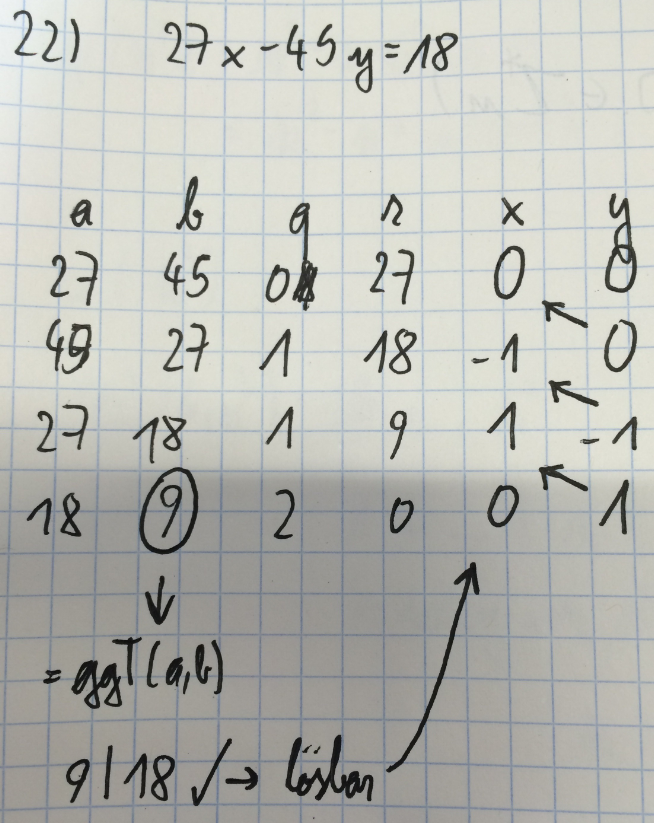 22) 27x - 45y = 18
a b q r x y
27 45 0 27 0 0
45 27 1 18 -1 0
27 18 1 9 1 -1
18 9 2 0 0 1
= ggT(a,b)
9 | 18 ✓ → lösbar